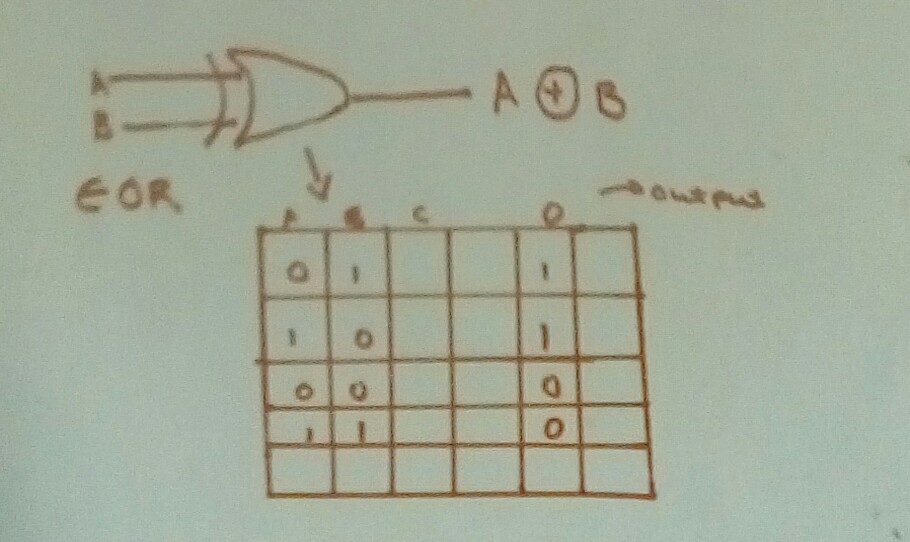 A
A ⊕ B
B
EOR
→ output
A B C O
0 1 1
1 0 1
0 0 0
1 1 0